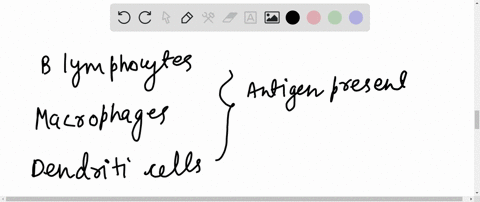 B lymphocytes
Macrophages
Dendriti cells
Antigen present